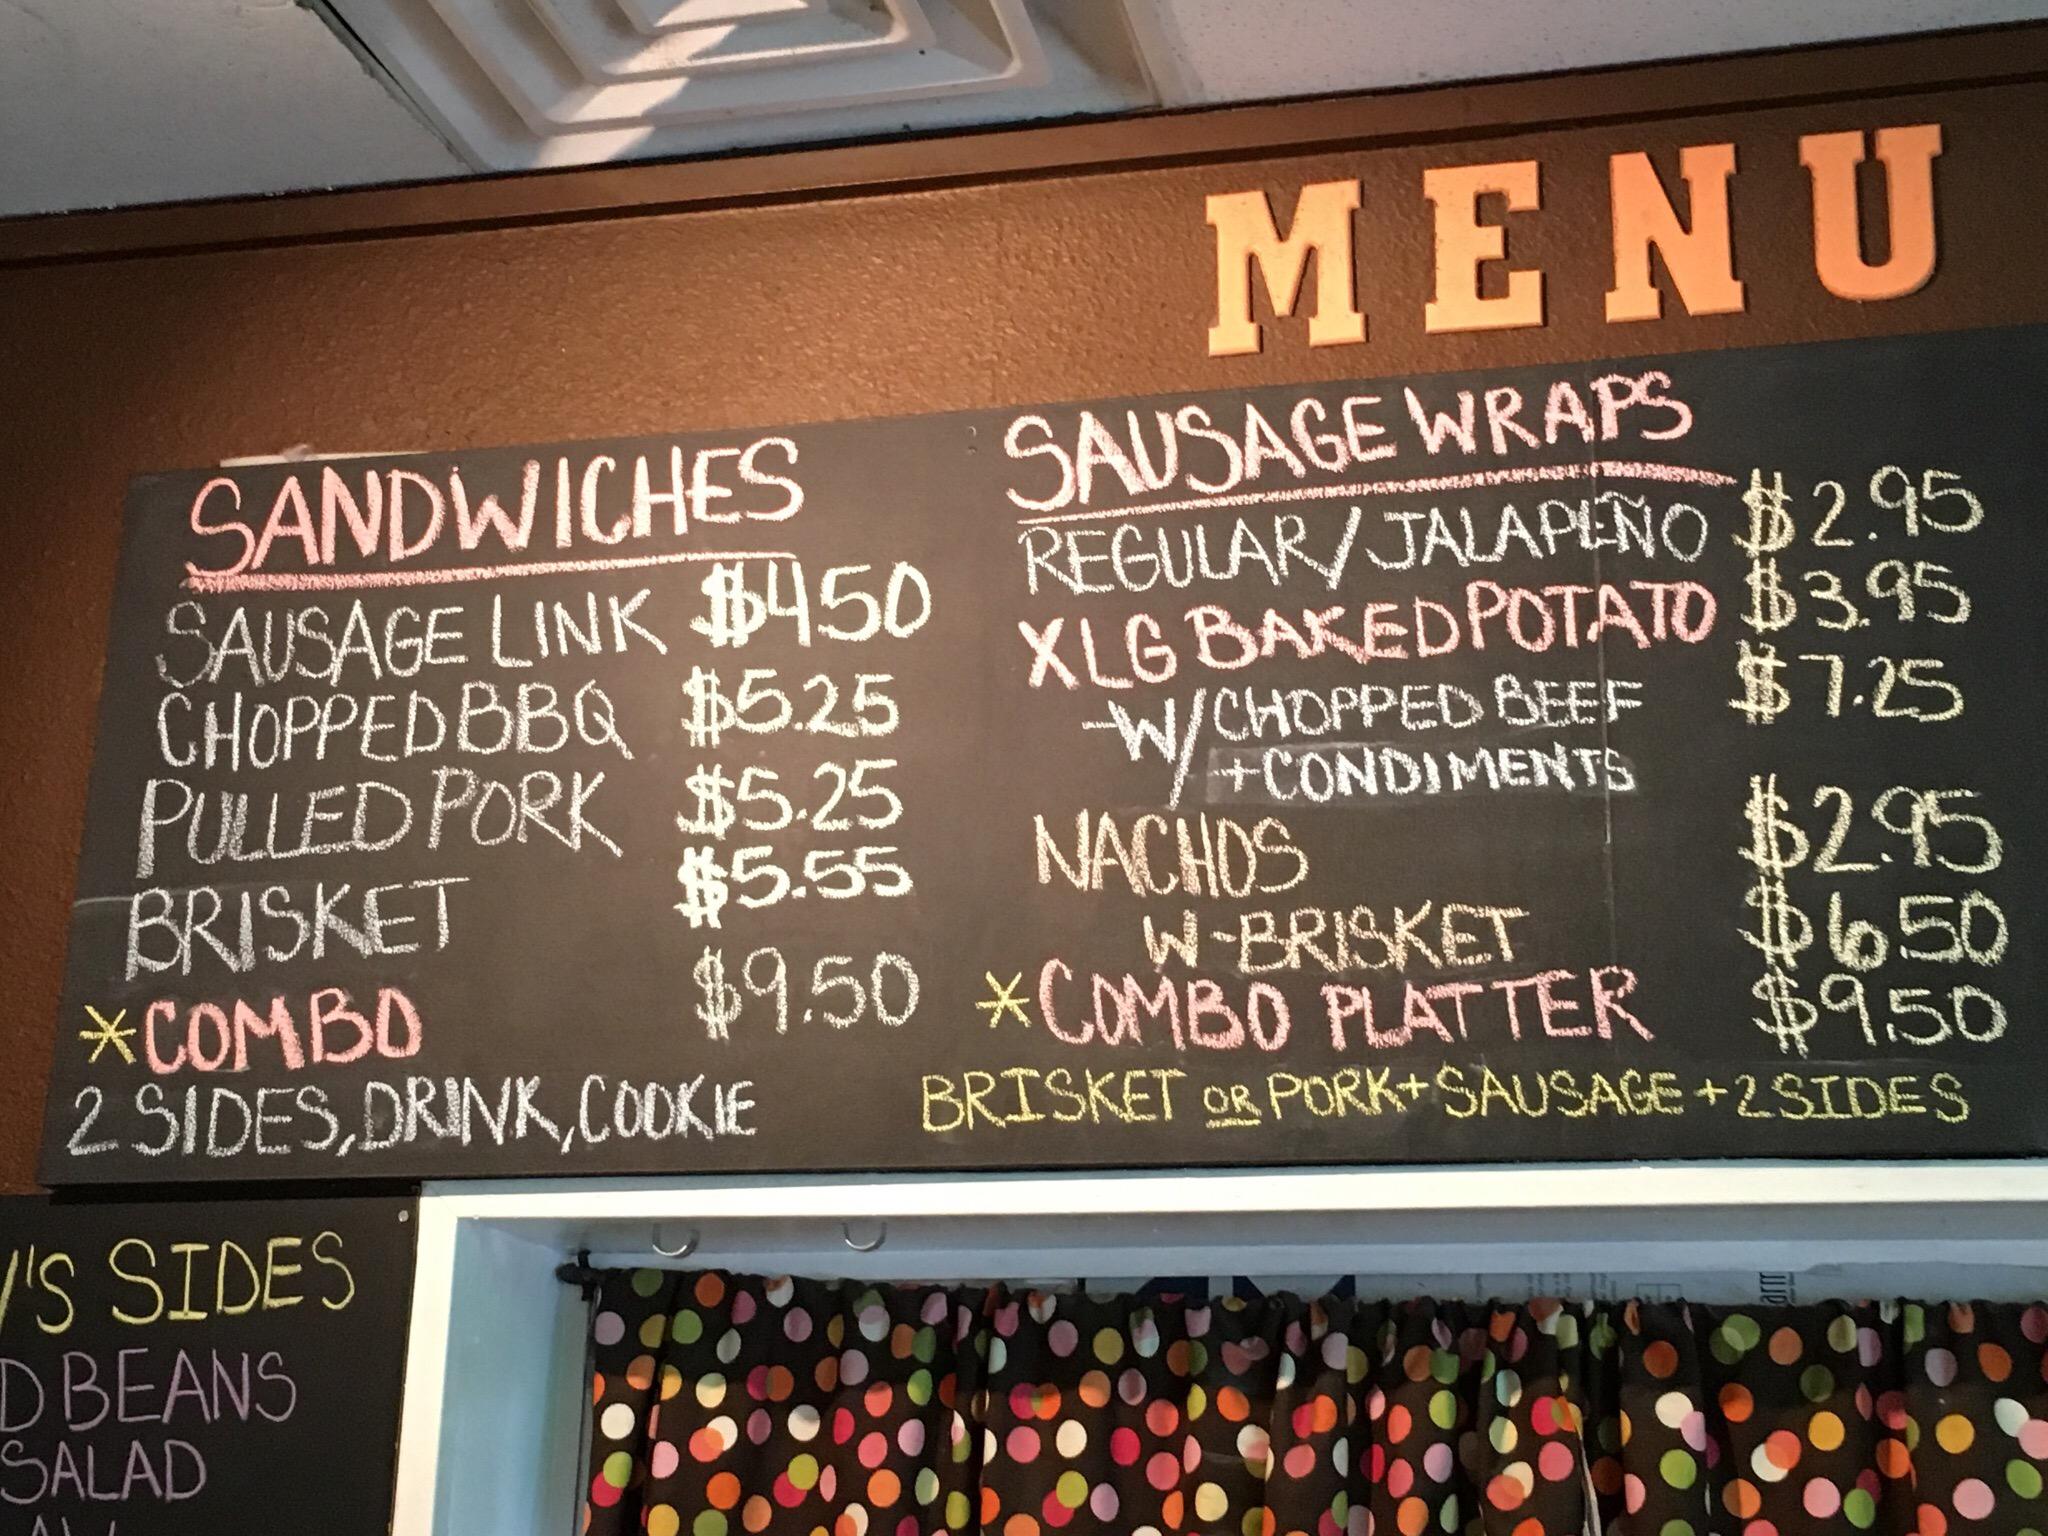 MENU
SANDWICHES
SAUSAGE LINK $4.50
CHOPPED BBQ $5.25
PULLED PORK $5.25
BRISKET $5.55
*COMBO $9.50
2 SIDES, DRINK, COOKIE
SAUSAGE WRAPS
REGULAR/JALAPEÑO $2.95
XLG BAKED POTATO $3.95
-W/CHOPPED BEEF $7.25
+CONDIMENTS
NACHOS $2.95
W-BRISKET $6.50
*COMBO PLATTER $9.50
BRISKET OR PORK + SAUSAGE + 2 SIDES
'S SIDES
D BEANS
SALAD